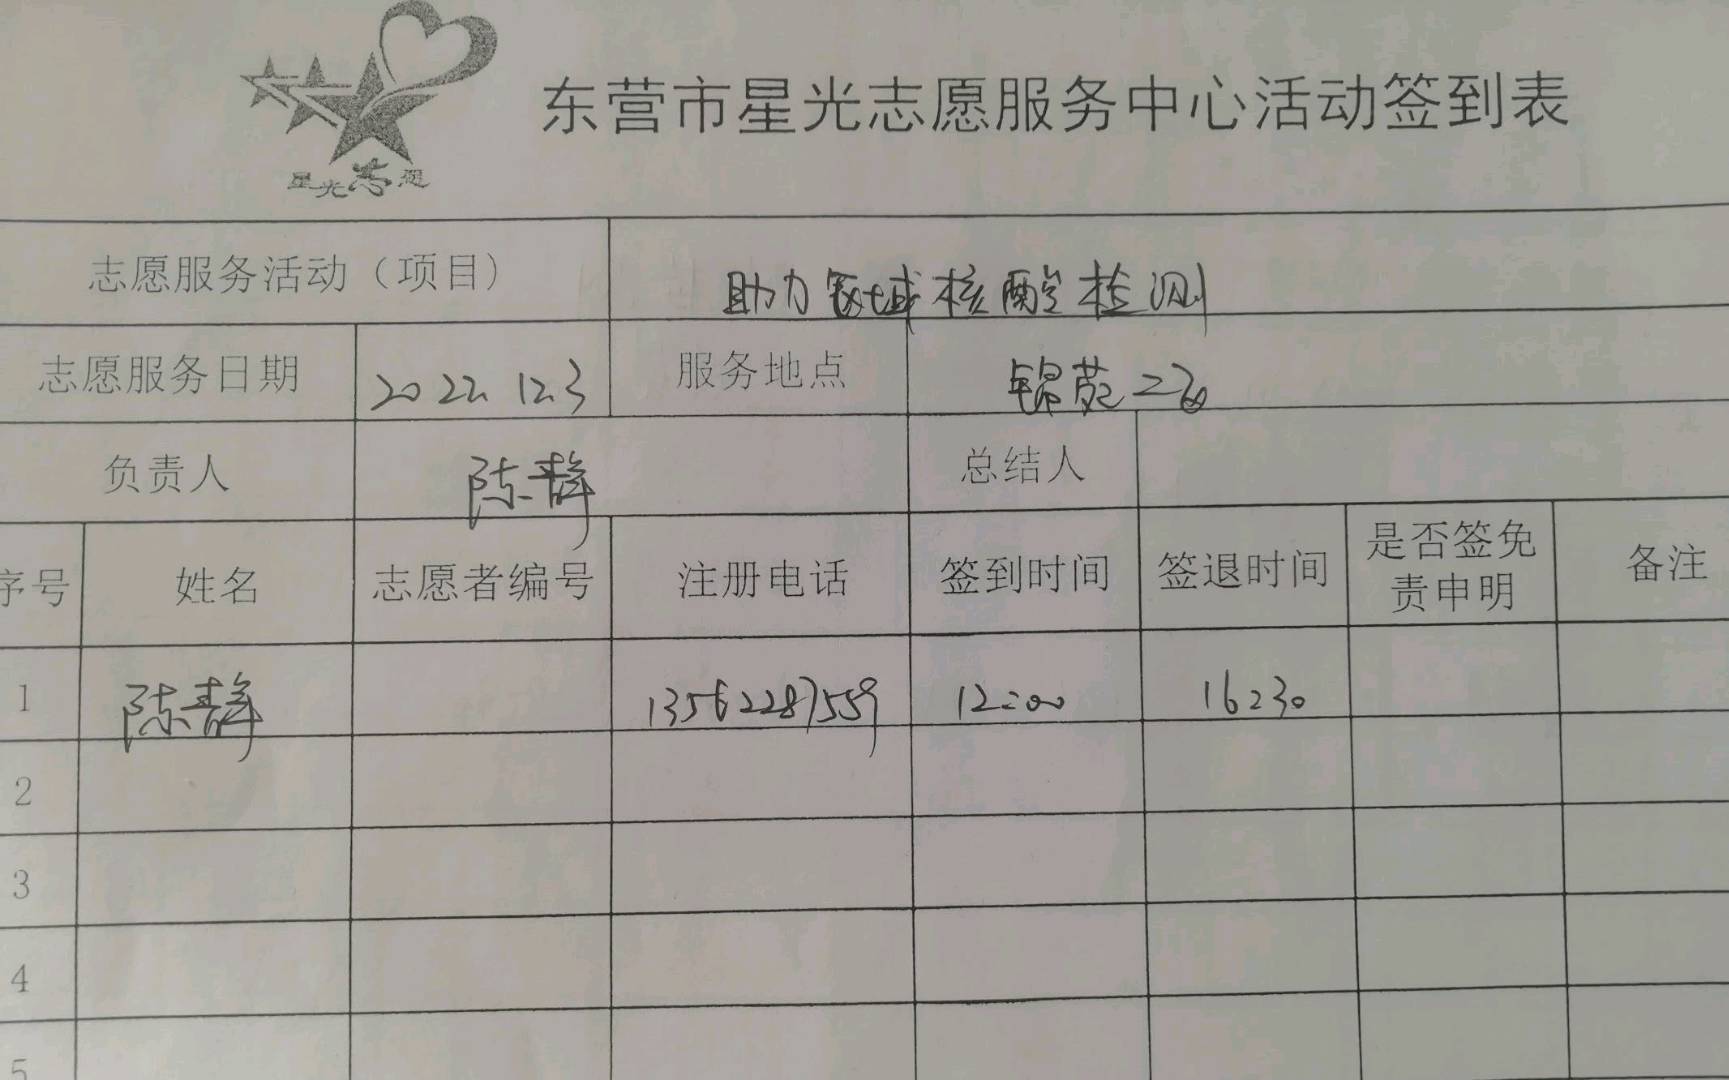 星光志愿
东营市星光志愿服务中心活动签到表
志愿服务活动（项目） 助力区域核酸检测
志愿服务日期 2022.12.3 服务地点 锦苑二
负责人 陈静 总结人
序号 姓名 志愿者编号 注册电话 签到时间 签退时间 是否签免责申明 备注
1 陈静 13562287559 12:00 16:30
2
3
4
5